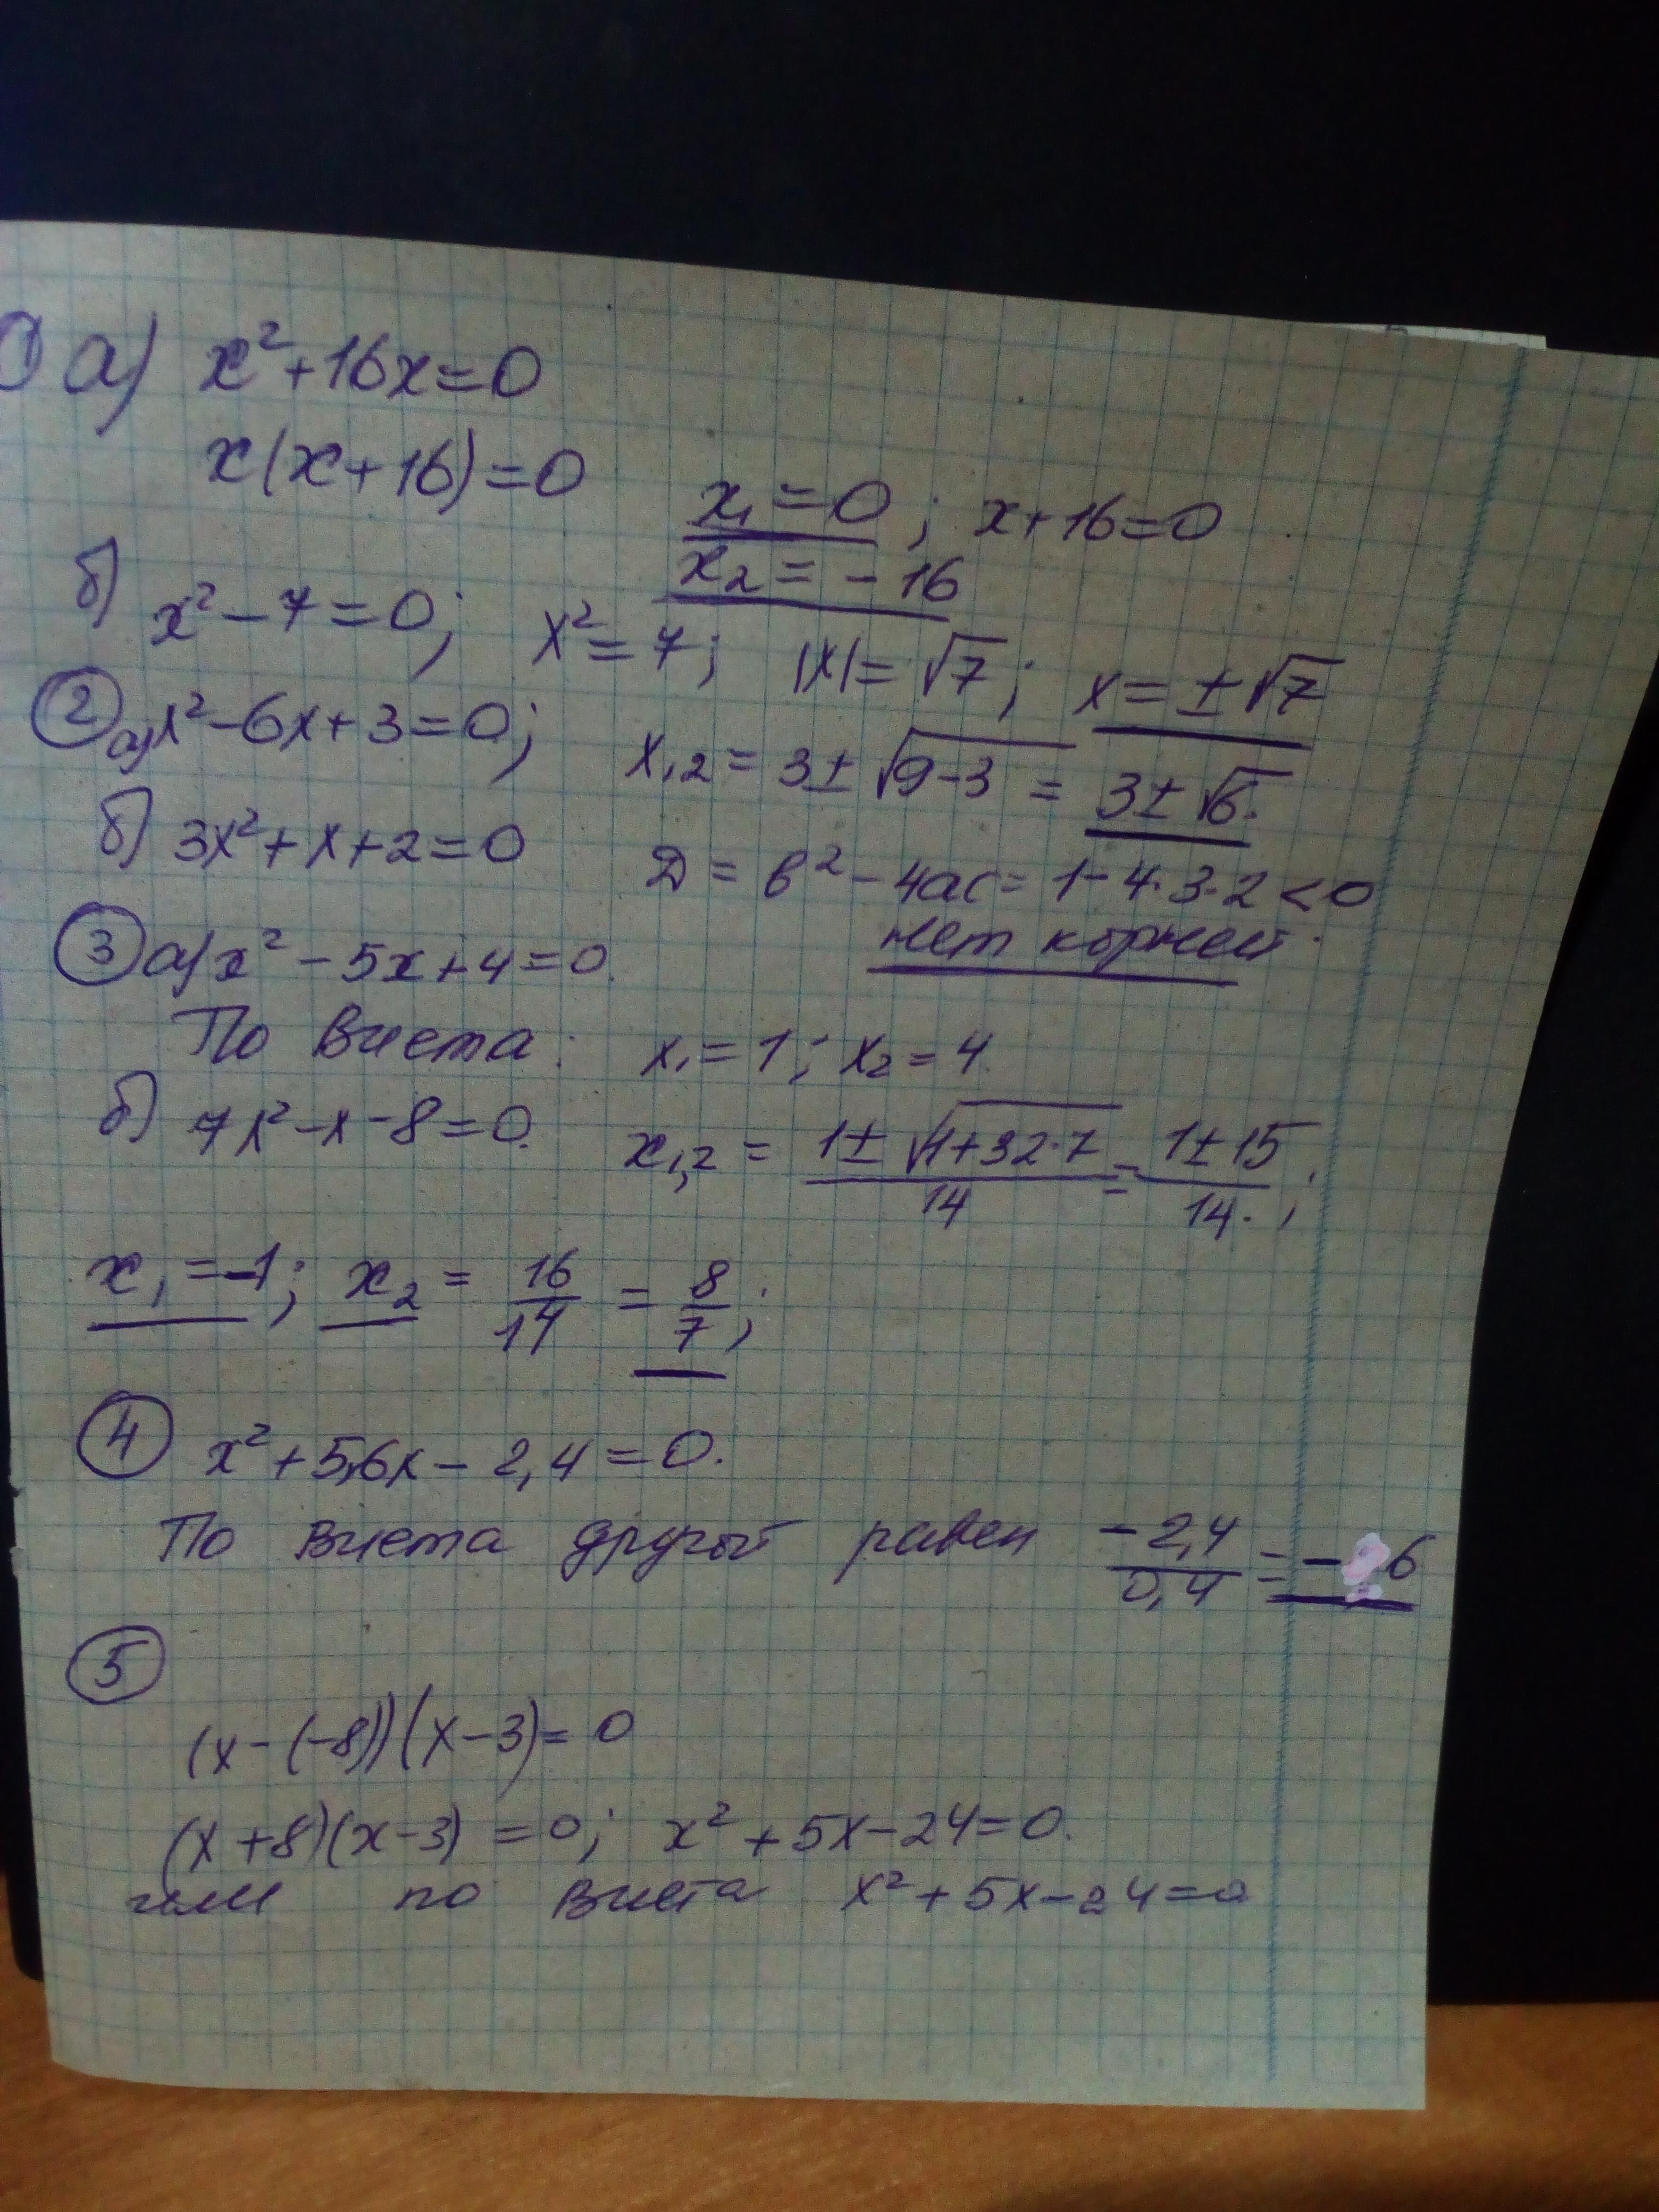 ① а) x²+16x=0
x(x+16)=0 x₁=0; x+16=0
x₂=-16
б) x²-7=0; x²=7; |x|=√7; x=±√7
② а) x²-6x+3=0; x₁,₂=3±√(9-3) = 3±√6.
б) 3x²+x+2=0 D=b²-4ac=1-4·3·2<0
нет корней.
③ а) x²-5x+4=0.
По Виета: x₁=1; x₂=4.
б) 7x²-x-8=0. x₁,₂ = (1±√(1+32·7))/14 = (1±15)/14.;
x₁=-1; x₂ = 16/14 = 8/7;
④ x²+5,6x-2,4=0.
По Виета другой равен -2,4/0,4 = -6
⑤
(x-(-8))(x-3)=0
(x+8)(x-3)=0; x²+5x-24=0.
или по Виета x²+5x-24=0